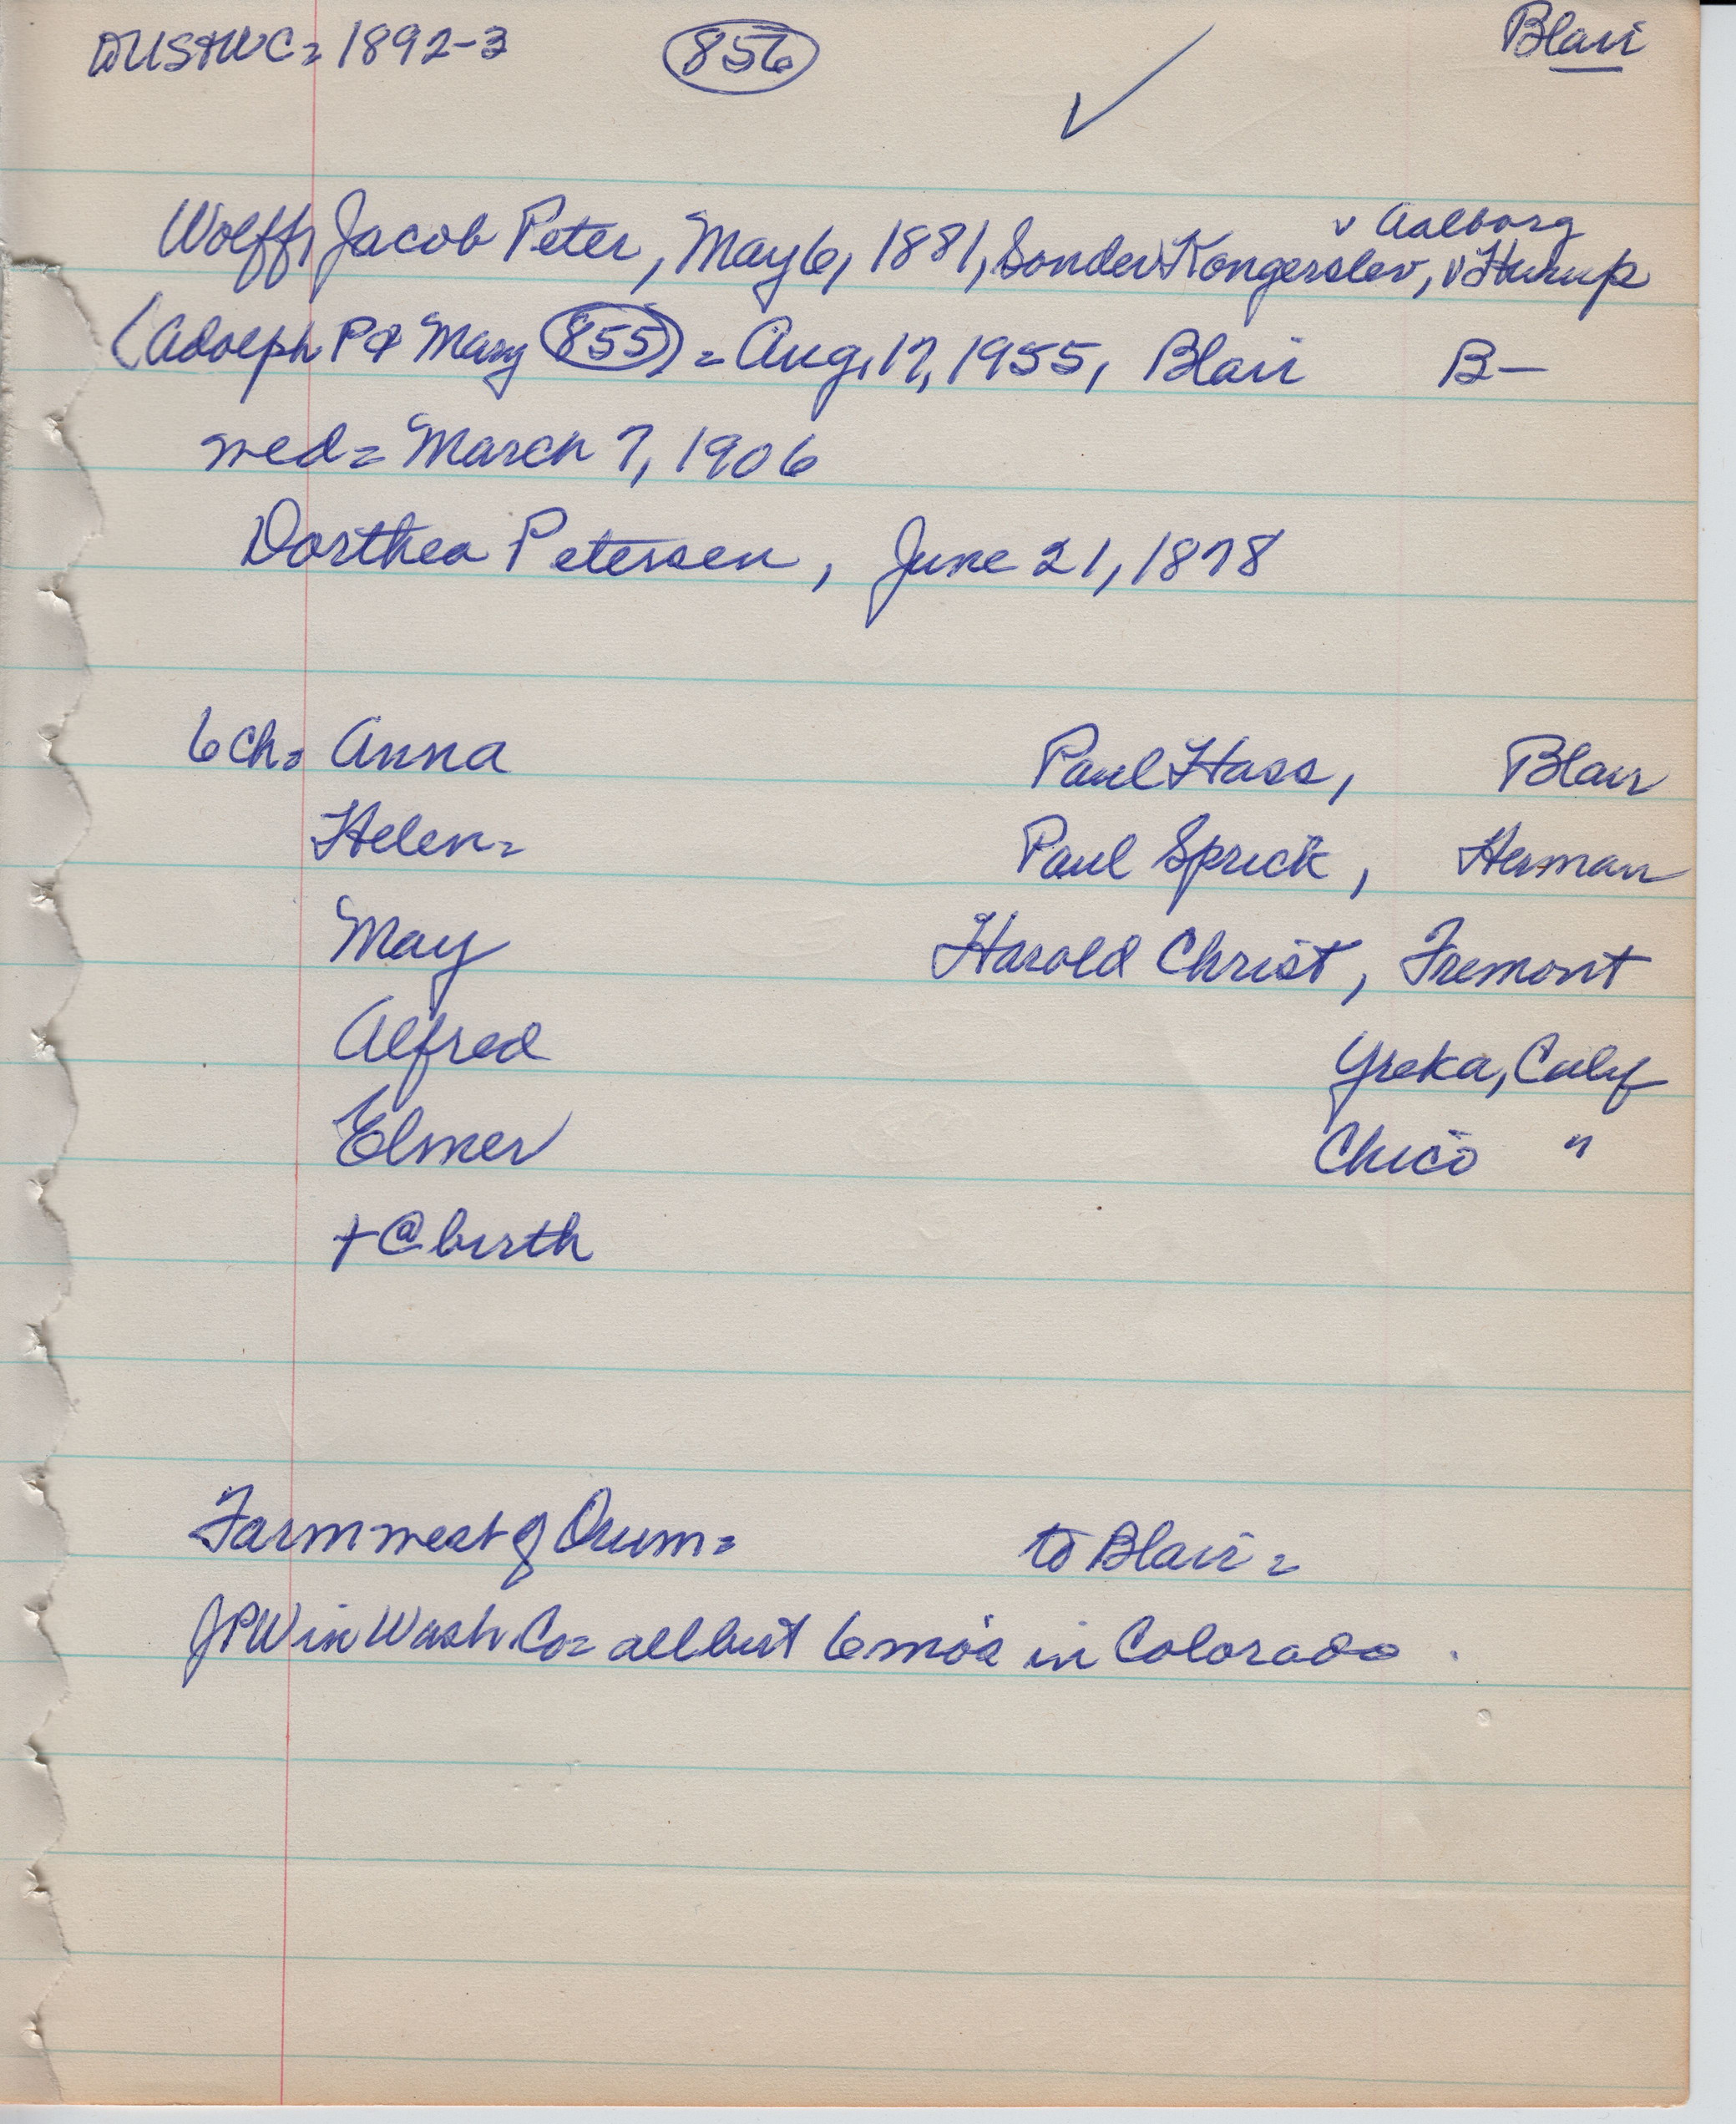 to US + WC = 1892-3 856 Blair
v Aalborg
Wolff, Jacob Peter, May 6, 1881, Sonder Kongerslev, v Hurup
(Adolph P & Mary 855) = Aug. 17, 1955, Blair B—
wed = March 7, 1906
Dorthea Petersen, June 21, 1878
6 ch = Anna Paul Hass, Blair
Helen = Paul Sprick, Herman
May Harold Christ, Fremont
Alfred Yreka, Calif
Elmer Chico "
+ @ birth
Farm west of Orum = to Blair =
JPW in Wash. Co = all but 6 mo's in Colorado.